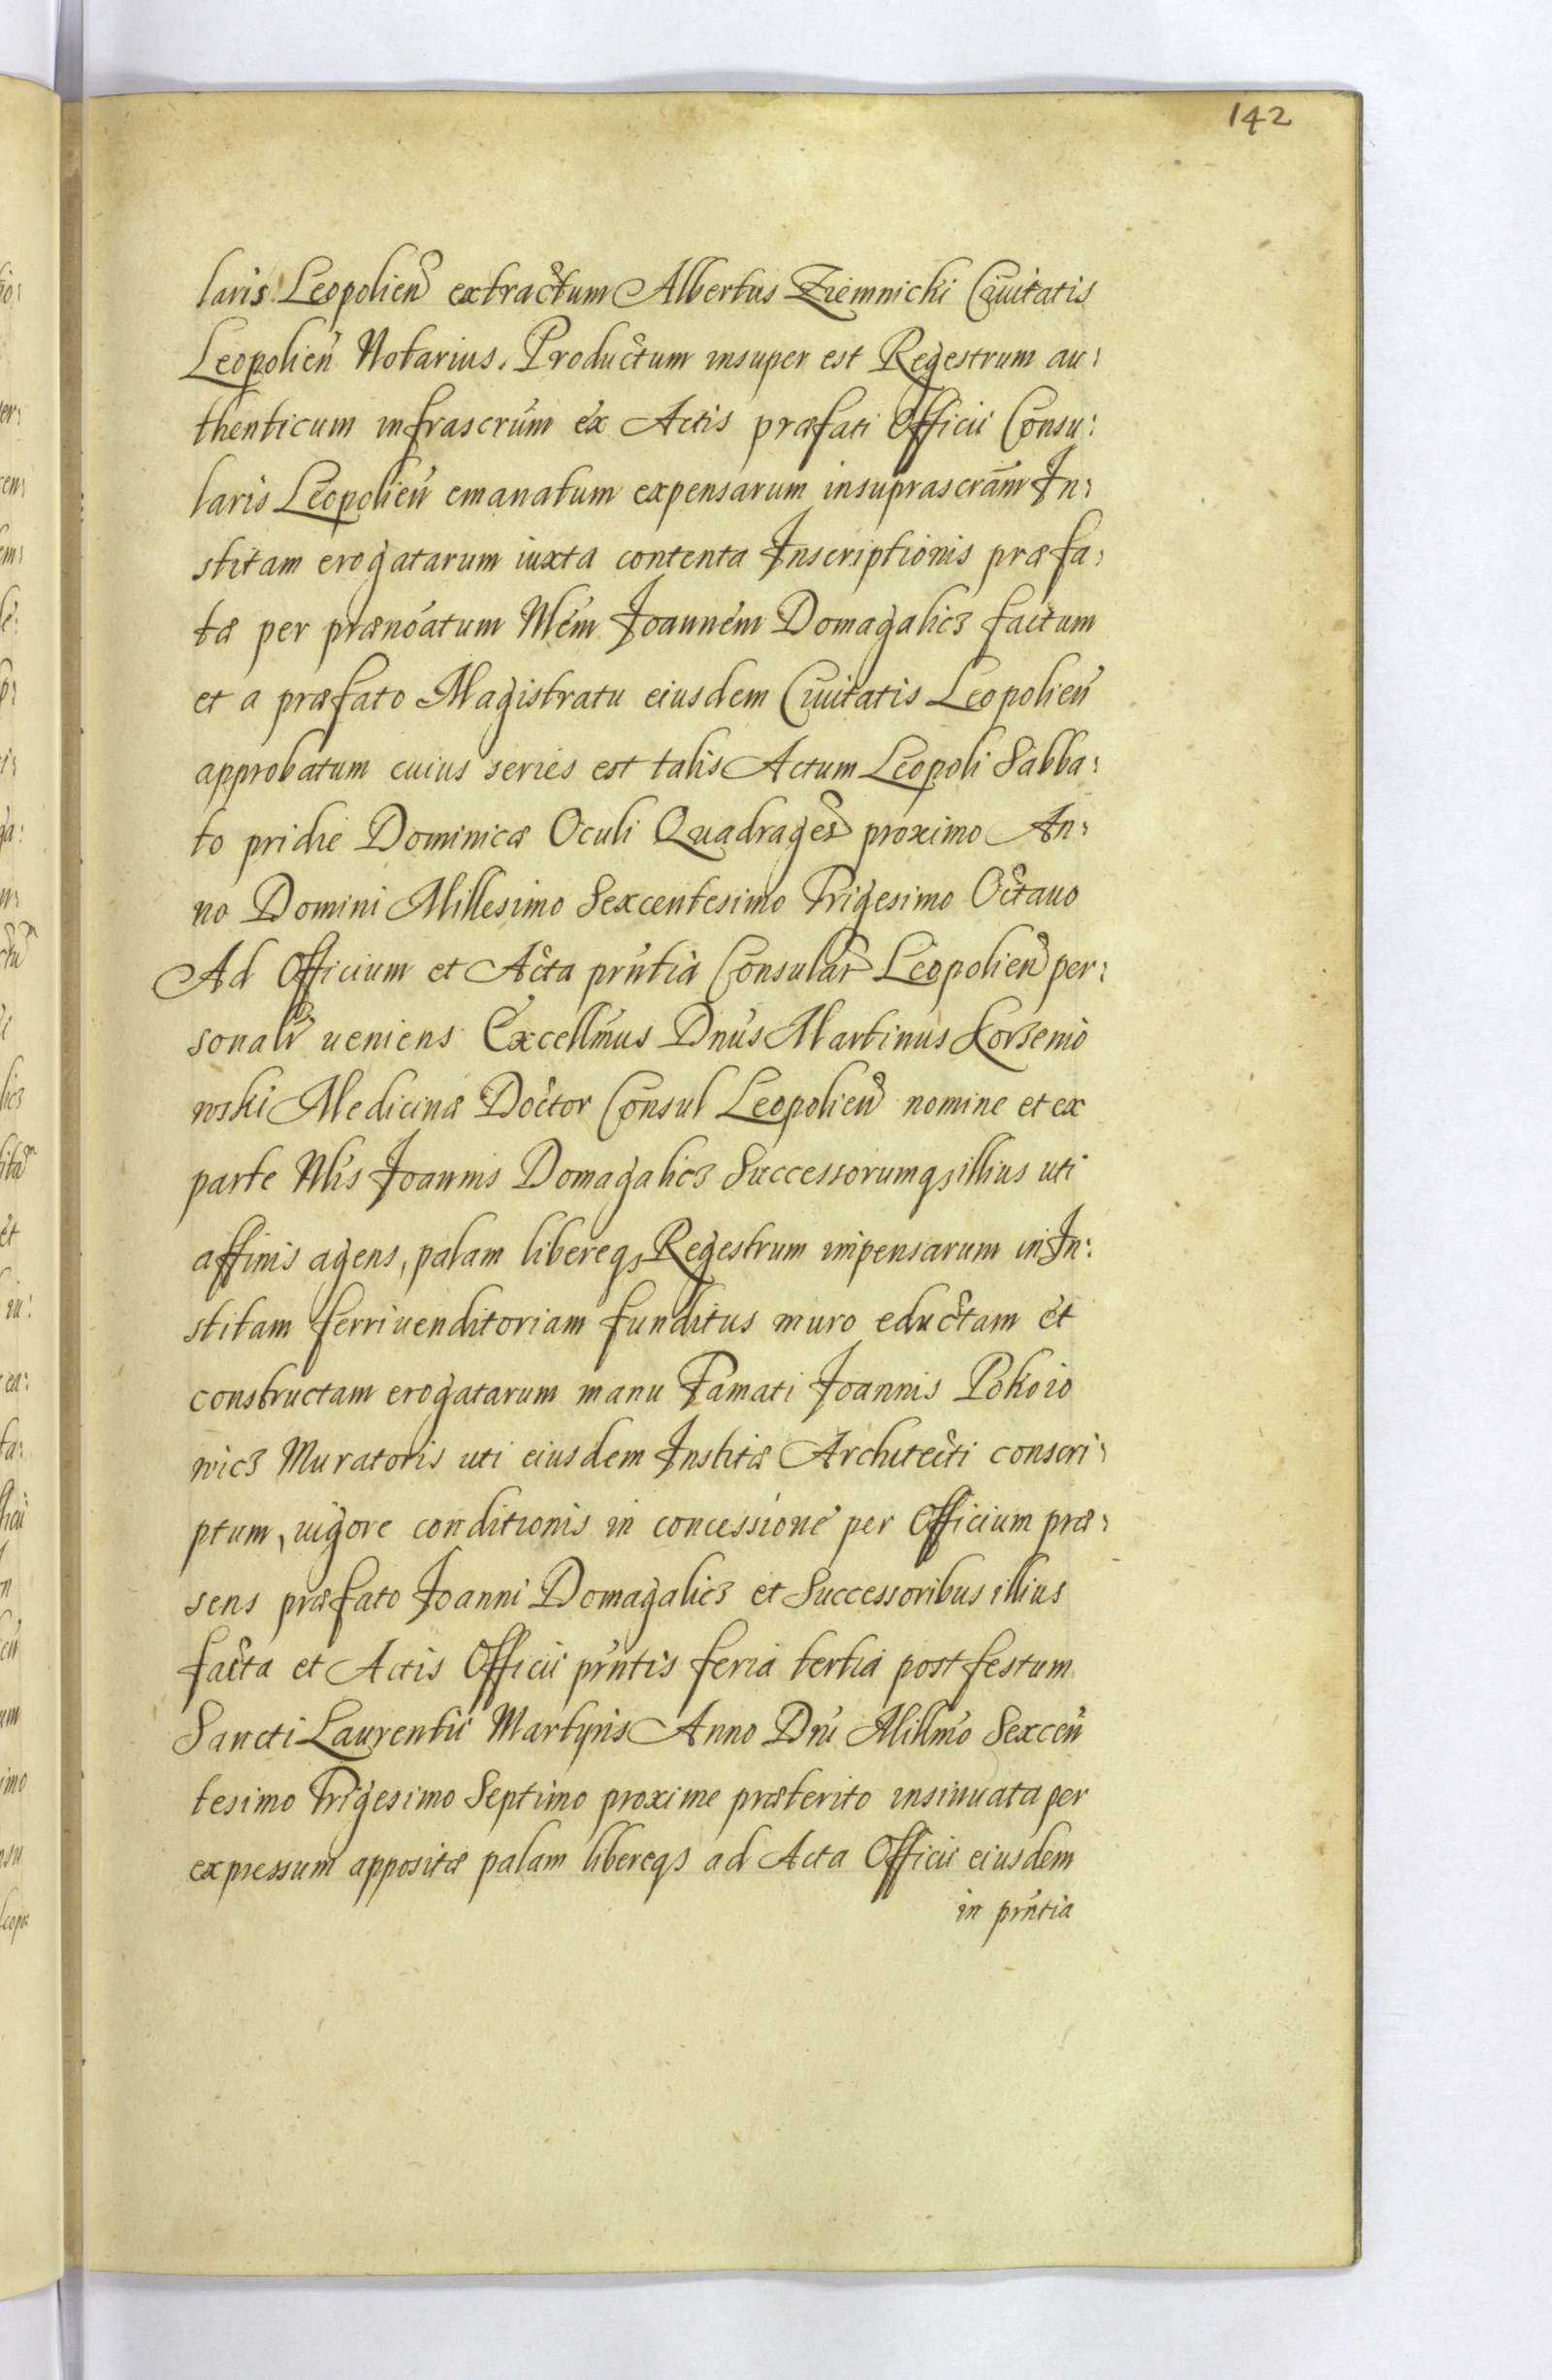 142
laris Leopolien̄ extractum Albertus Ziemnicki Ciuitatis
Leopolien̄ Notarius. Productum insuper est Regestrum au:
thenticum infrascrūm ex Actis præfati Officii Consu:
laris Leopolien̄ emanatum expensarum in suprascrām In:
stitam erogatarum iuxta contenta Inscriptionis præfa:
tæ per prænōatum Nlēm Joannem Domagalicz factum
et a præfato Magistratu eiusdem Ciuitatis Leopolien̄
approbatum cuius series est talis Actum Leopoli Sabba:
to pridie Dominicæ Oculi Quadrages̄ proximo An:
no Domini Millesimo Sexcentesimo Trigesimo Octauo
Ad Officium et Acta prn̄tia Consular̄ Leopolien̄ per:
sonalr̄ ueniens Excellm̄us Dnūs Martinus Korzenio
wski Medicinæ Doctor Consul Leopolien̄ nomine et ex
parte Nlīs Joannis Domagalicz Successorumq; illius uti
affinis agens, palam libereq; Regestrum impensarum in In:
stitam ferriuenditoriam funditus muro eductam et
constructam erogatarum manu Famati Joannis Pokoio
wicz Muratoris uti eiusdem Institæ Architecti conscri:
ptum, uigore conditionis in concessione per Officium præ:
sens præfato Joanni Domagalicz et Successoribus illius
facta et Actis Officii prn̄tis feria tertia post festum
Sancti Laurentii Martyris Anno Dnī Millm̄o Sexcen̄
tesimo Trigesimo Septimo proxime præterito insinuata per
expressum appositæ palam libereqs ad Acta Officii eiusdem
in prn̄tia